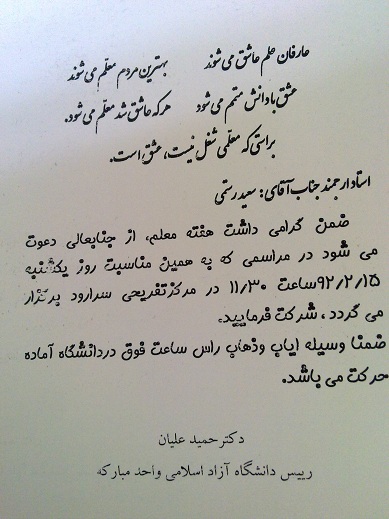 عارفان علم عاشق می شوند بهترین مردم معلّم می شوند
عشق با دانش متمم می شود هر که عاشق شد معلّم می شود.
براستی که معلّمی شغل نیست، عشق است.
استاد ارجمند جناب آقای: سعید رستمی
ضمن گرامی داشت هفته معلم، از جنابعالی دعوت
می شود در مراسمی که به همین مناسبت روز یکشنبه
۹۲/۲/۱۵ساعت ۱۱/۳۰ در مرکزتفریحی سرارود برگزار
می گردد ، شرکت فرمایید.
ضمنا وسیله ایاب وذهاب راس ساعت فوق دردانشگاه آماده
حرکت می باشد.
دکترحمید علیان
رییس دانشگاه آزاد اسلامی واحد مبارکه